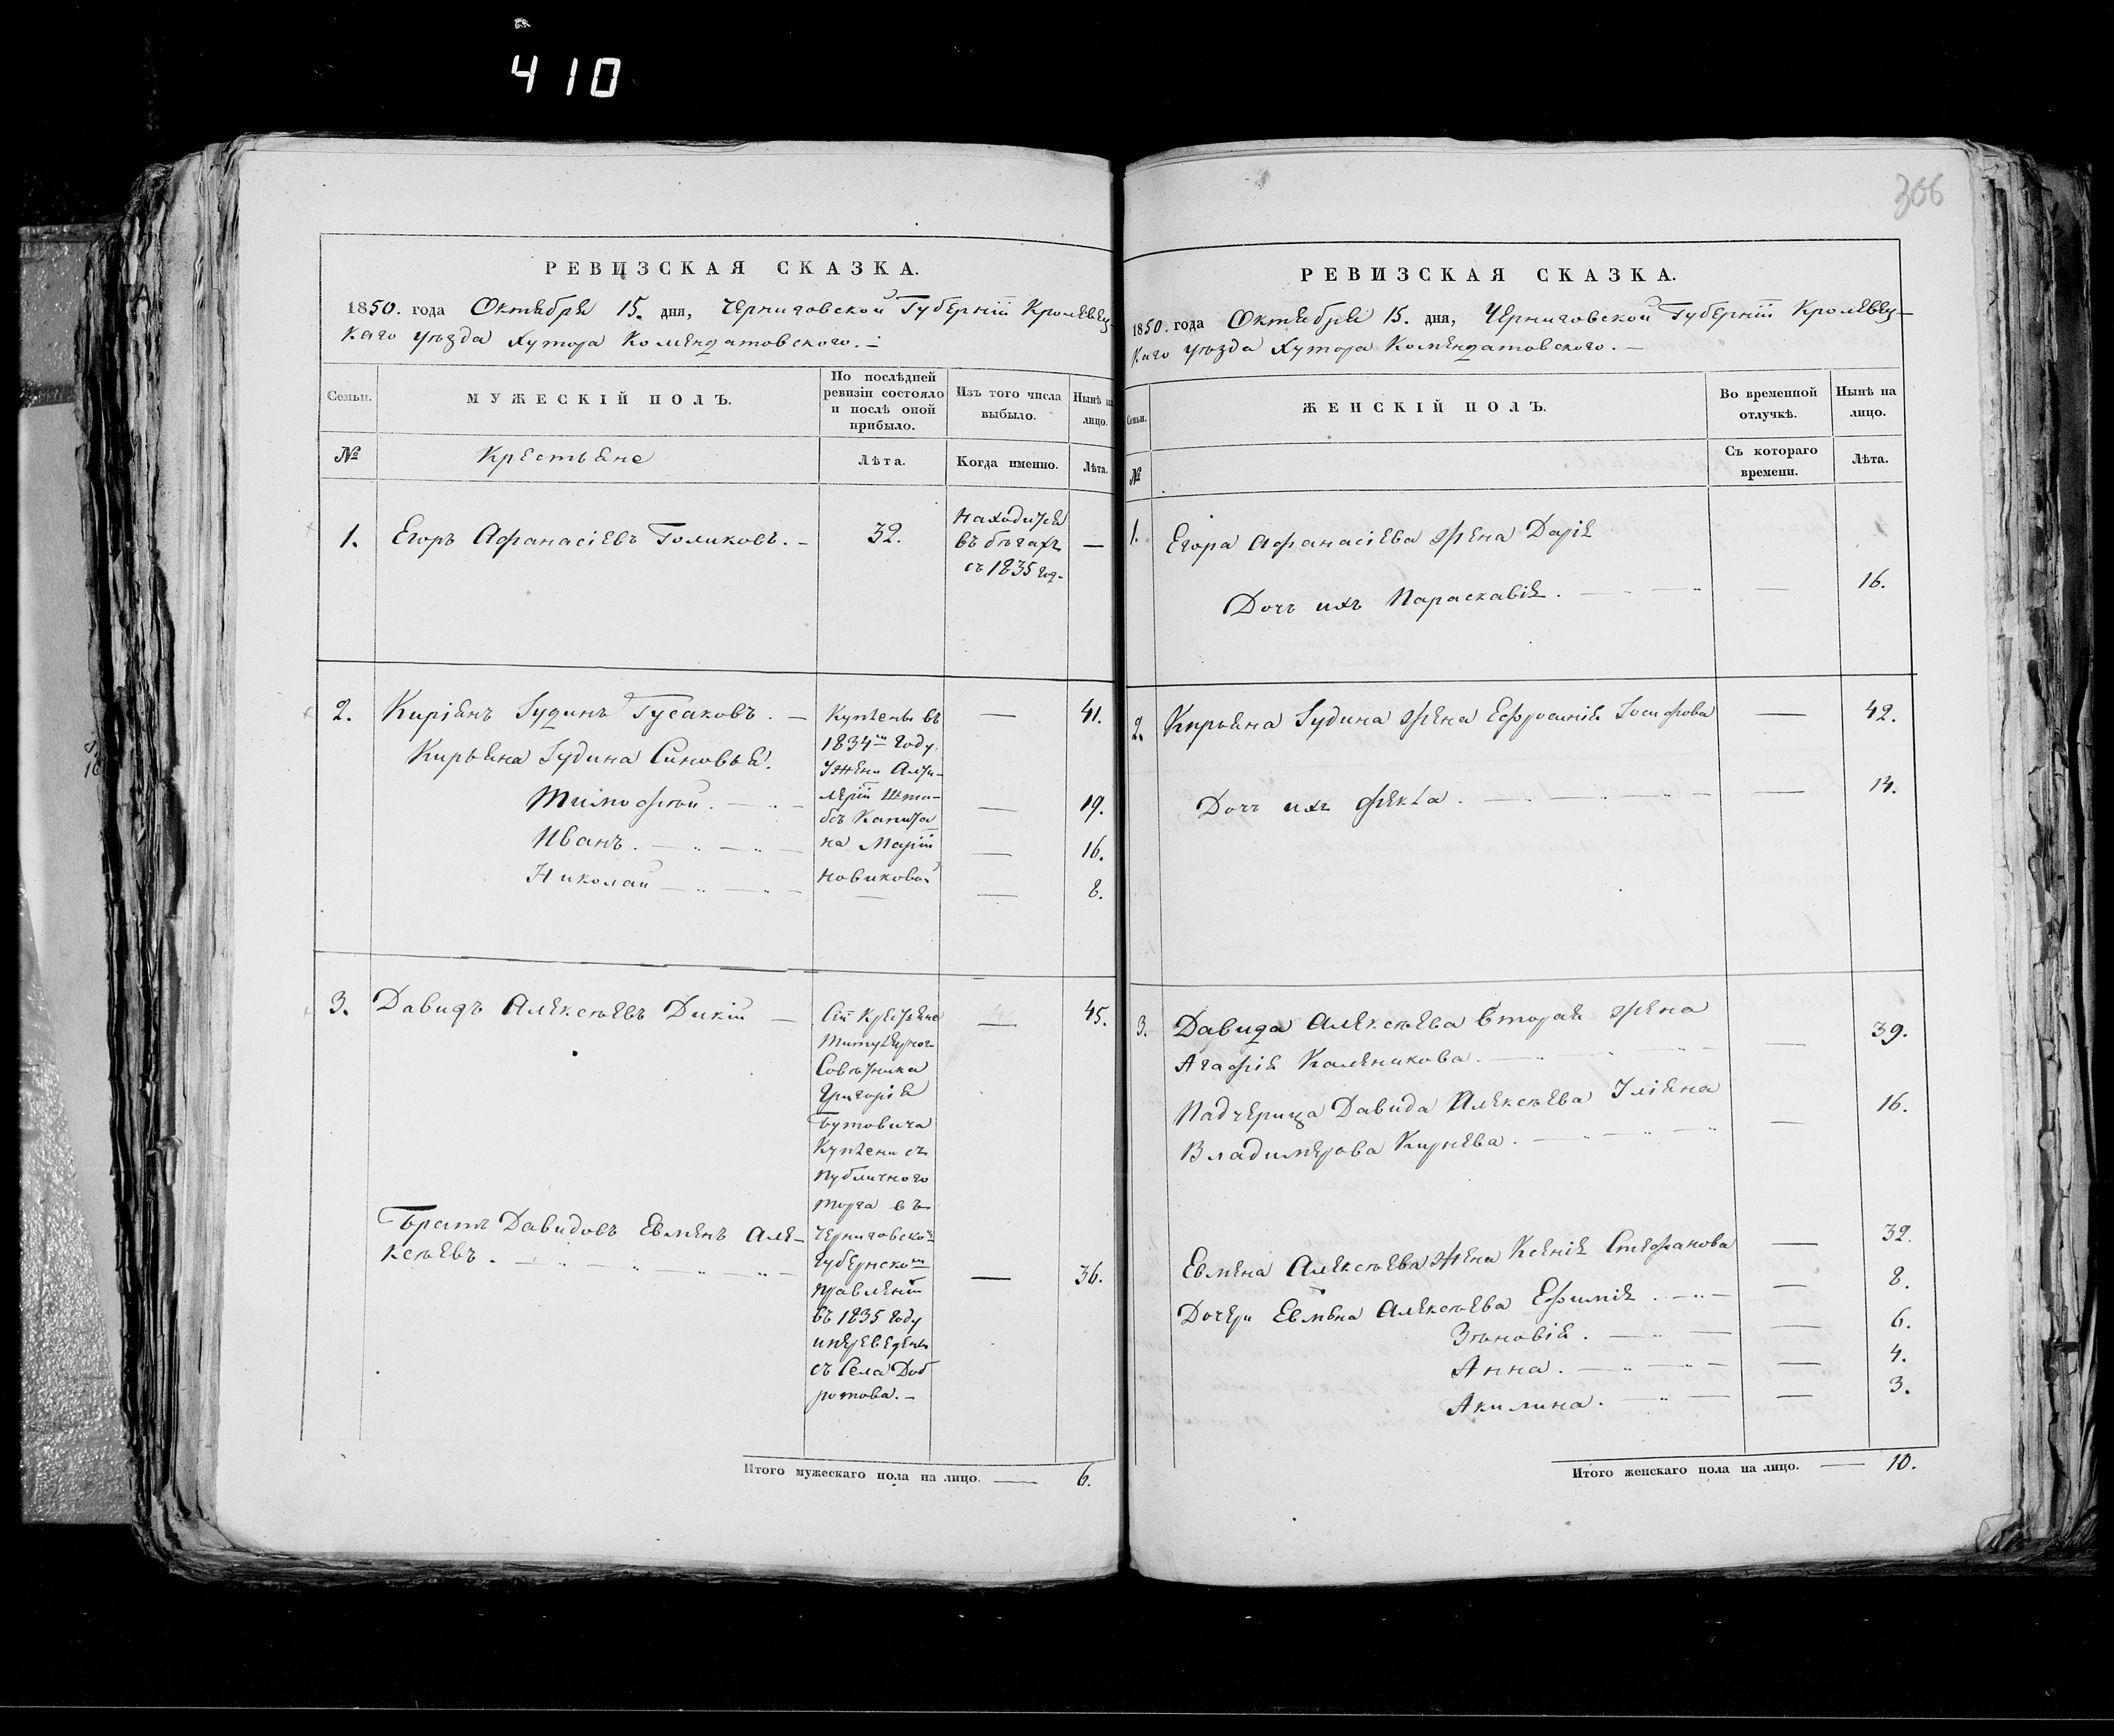 410
РЕВИЗСКАЯ СКАЗКА.
1850. года Октября 15. дня, Черниговской Губерніи Кролевец-
каго уѣзда Хутора Комендатовского. —
Семьи.
МУЖЕСКІЙ ПОЛЪ.
По послѣдней ревизіи состояло и послѣ оной прибыло.
Изъ того числа выбыло.
Нынѣ на лицо.
№
Крестьяне
Лѣта.
Когда именно.
Лѣта.
1. Егоръ Афанасіевъ Голиковъ. — 32.
находится
въ бѣгахъ —
съ 1835 год.
2. Киріянъ Іудинъ Гусаковъ. — — 41.
Кирьяна Іудина Синовья.
Тимофѣй. — — 19.
Иванъ. — — 16.
Николай — — 8.
Куплены въ
1834м году.
У жены Арти-
леріи Шта-
бсъ Капита
на Маріи
Новиковой
3. Давидъ Алексѣевъ Дикій — — 45.
Братъ Давидовъ Евменъ Але-
ксѣевъ. — — 36.
Сіи Крестьяне
Титулярного
Совѣтника
Григорія
Бутовича
Куплени съ
публичного
торга въ
Черниговском
Губернском
правленіи
въ 1835 году
и переведены
съ Села Доб
ротова. —
Итого мужескаго пола на лицо. — 6.
306
РЕВИЗСКАЯ СКАЗКА.
1850. года Октября 15. дня, Черниговской Губерніи Кролевец-
каго уѣзда Хутора Комендатовского. —
Семьи.
ЖЕНСКІЙ ПОЛЪ.
Во временной отлучкѣ.
Нынѣ на лицо.
№
Съ котораго времени.
Лѣта.
1. Егора Афанасіева жена Дарія
Дочь ихъ Параскавія. — — 16.
2. Кирьяна Іудина жена Ефросинія Іосифова — 42.
Дочь ихъ Фекла. — — 14.
3. Давида Алексѣева вторая жена
Агафія Каленикова. — — 39.
Падчерица Давида Алексѣева Уліяна
Владимерова Кирнева. — — 16.
Евмена Алексѣева жена Ксенія Стефанова — 32.
Дочери Евмена Алексѣева Ефимія — — 8.
Зѣновія. — — 6.
Анна. — — 4.
Акилина. — — 3.
Итого женскаго пола на лицо. — 10.